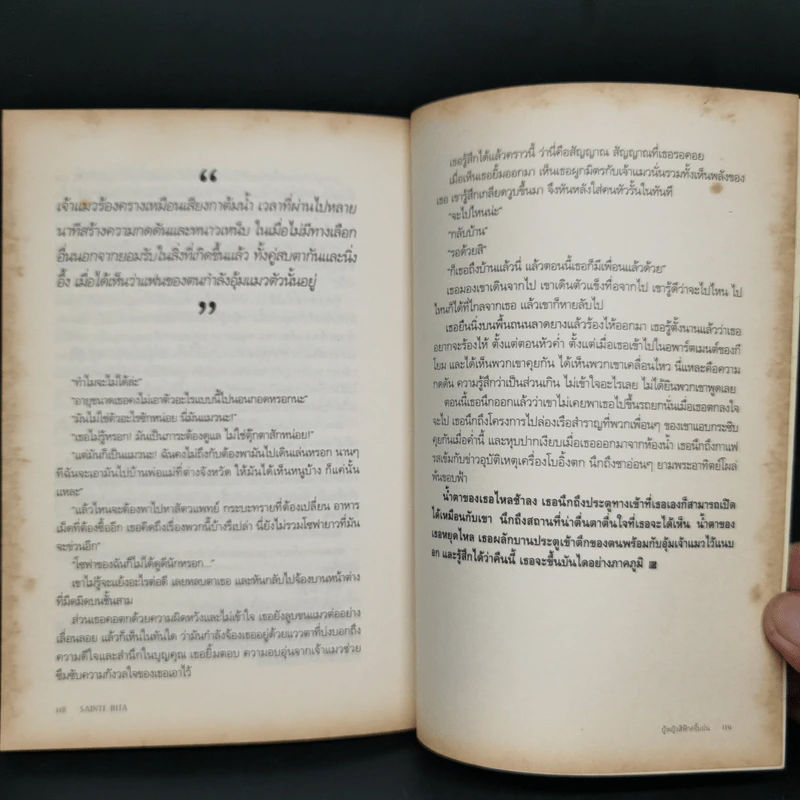 “
เจ้าแมวร้องครางเหมือนเสียงกาต้มน้ำ เวลาที่ผ่านไปหลาย
นาทีสร้างความกดดันและหนาวเหน็บ ในเมื่อไม่มีทางเลือก
อื่นนอกจากยอมรับในสิ่งที่เกิดขึ้นแล้ว ทั้งคู่สบตากันและนิ่ง
อึ้ง เมื่อได้เห็นว่าแฟนของตนกำลังอุ้มแมวตัวนั้นอยู่
”
“ทำไมจะไม่ได้ล่ะ”
“อายุขนาดเธอคงไม่เอาตัวอะไรแบบนี้ไปนอนกอดหรอกนะ”
“มันไม่ใช่ตัวอะไรซักหน่อย นี่มันแมวนะ!”
“เธอไม่รู้หรอก! มันเป็นภาระจะต้องดูแล ไม่ใช่ตุ๊กตาสักหน่อย!”
“แต่มันก็เป็นแมวนะ! ฉันคงไม่ถึงกับต้องพามันไปเดินเล่นหรอก นานๆ
ทีฉันจะเอามันไปบ้านพ่อแม่ที่ต่างจังหวัด ให้มันได้เห็นหนูบ้าง ก็แค่นั้น
แหละ”
“แล้วไหนจะต้องพาไปหาสัตวแพทย์ กระบะทรายที่ต้องเปลี่ยน อาหาร
เม็ดที่ต้องซื้ออีก เธอคิดถึงเรื่องพวกนี้บ้างรึเปล่า นี่ยังไม่รวมโซฟายาวที่มัน
จะข่วนอีก”
“โซฟาของฉันก็ไม่ได้ดูดีนักหรอก...”
เขาไม่รู้จะแย้งอะไรต่อดี เลยหลบตาเธอ และหันกลับไปจ้องบานหน้าต่าง
ที่มืดมิดบนชั้นสาม
ส่วนเธอคอตกด้วยความผิดหวังและไม่เข้าใจ เธอยังลูบขนแมวต่ออย่าง
เลื่อนลอย แล้วก็เห็นในทันใด ว่ามันกำลังจ้องเธออยู่ด้วยแววตาที่บ่งบอกถึง
ความดีใจและสำนึกในบุญคุณ เธอยิ้มตอบ ความอบอุ่นจากเจ้าแมวช่วย
ซึมซับความกังวลใจของเธอเอาไว้
118 SAINTE RITA
เธอรู้สึกได้แล้วคราวนี้ ว่านี่คือสัญญาณ สัญญาณที่เธอรอคอย
เมื่อเห็นเธอยิ้มออกมา เห็นเธอผูกมิตรกับเจ้าแมวนั่นรวมทั้งเห็นพลังของ
เธอ เขารู้สึกเกลียดวูบขึ้นมา จึงหันหลังใส่คนหัวรั้นในทันที
“จะไปไหนน่ะ”
“กลับบ้าน”
“รอด้วยสิ”
“ก็เธอถึงบ้านแล้วนี่ แล้วตอนนี้เธอก็มีเพื่อนแล้วด้วย”
เธอมองเขาเดินจากไป เขาเดินตัวแข็งทื่อจากไป เขารู้ดีว่าจะไปไหน ไป
ไหนก็ได้ที่ไกลจากเธอ แล้วเขาก็หายลับไป
เธอยืนนิ่งบนพื้นถนนลาดยางแล้วร้องไห้ออกมา เธอรู้ตั้งนานแล้วว่าเธอ
อยากจะร้องไห้ ตั้งแต่ตอนหัวค่ำ ตั้งแต่เมื่อเธอเข้าไปในอพาร์ตเมนต์ของกี
โยม และได้เห็นพวกเขาคุยกัน ได้เห็นพวกเขาเคลื่อนไหว นี่แหละคือความ
กดดัน ความรู้สึกว่าเป็นส่วนเกิน ไม่เข้าใจอะไรเลย ไม่ได้ยินพวกเขาพูดเลย
ตอนนี้เธอนึกออกแล้วว่าเขาไม่เคยพาเธอไปขึ้นรถยกนั่นเมื่อเธอตกลงใจ
จะไป เธอนึกถึงโครงการไปล่องเรือสำราญที่พวกเพื่อนๆ ของเขาแอบกระซิบ
คุยกันเมื่อค่ำนี้ และหุบปากเงียบเมื่อเธอออกมาจากห้องน้ำ เธอนึกถึงกาแฟ
รสเข้มกับข่าวอุบัติเหตุเครื่องโบอิ้งตก นึกถึงชาอ่อนๆ ยามพระอาทิตย์โผล่
พ้นขอบฟ้า
น้ำตาของเธอไหลช้าลง เธอนึกถึงประตูทางเข้าที่เธอเองก็สามารถเปิด
ได้เหมือนกับเขา นึกถึงสถานที่น่าตื่นตาตื่นใจที่เธอจะได้เห็น น้ำตาของ
เธอหยุดไหล เธอผลักบานประตูเข้าตึกของตนพร้อมกับอุ้มเจ้าแมวไว้แนบ
อก และรู้สึกได้ว่าคืนนี้ เธอจะขึ้นบันไดอย่างภาคภูมิ
119